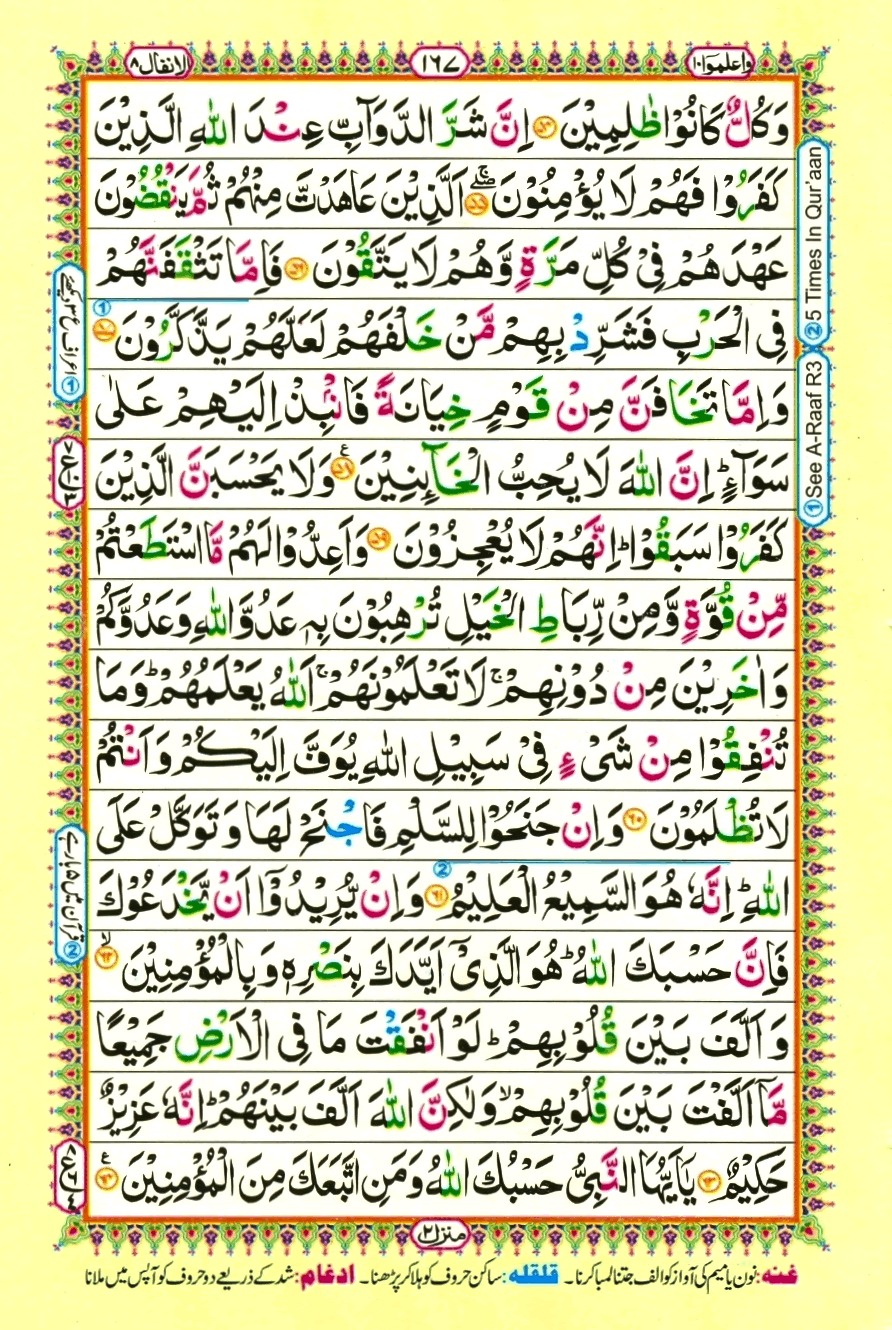 واعلموا ۱۰
۱۶۷
الانفال ۸
وَكُلٌّ كَانُوْا ظٰلِمِيْنَ ﴿۵۴﴾ اِنَّ شَرَّ الدَّوَآبِّ عِنْدَ اللّٰهِ الَّذِيْنَ
كَفَرُوْا فَهُمْ لَا يُؤْمِنُوْنَ ﴿۵۵﴾ۖۚ اَلَّذِيْنَ عَاهَدْتَّ مِنْهُمْ ثُمَّ يَنْقُضُوْنَ
عَهْدَهُمْ فِيْ كُلِّ مَرَّةٍ وَّهُمْ لَا يَتَّقُوْنَ ﴿۵۶﴾ فَاِمَّا تَثْقَفَنَّهُمْ
فِي الْحَرْبِ فَشَرِّدْ بِهِمْ مَّنْ خَلْفَهُمْ لَعَلَّهُمْ يَذَّكَّرُوْنَ ﴿۵۷﴾
وَاِمَّا تَخَافَنَّ مِنْ قَوْمٍ خِيَانَةً فَانْۢبِذْ اِلَيْهِمْ عَلٰى
سَوَآءٍ ؕ اِنَّ اللّٰهَ لَا يُحِبُّ الْخَآئِنِيْنَ ﴿۵۸﴾ وَلَا يَحْسَبَنَّ الَّذِيْنَ
كَفَرُوْا سَبَقُوْا ؕ اِنَّهُمْ لَا يُعْجِزُوْنَ ﴿۵۹﴾ وَاَعِدُّوْا لَهُمْ مَّا اسْتَطَعْتُمْ
مِّنْ قُوَّةٍ وَّمِنْ رِّبَاطِ الْخَيْلِ تُرْهِبُوْنَ بِهٖ عَدُوَّ اللّٰهِ وَعَدُوَّكُمْ
وَاٰخَرِيْنَ مِنْ دُوْنِهِمْ ۚ لَا تَعْلَمُوْنَهُمْ ۚ اَللّٰهُ يَعْلَمُهُمْ ؕ وَمَا
تُنْفِقُوْا مِنْ شَيْءٍ فِيْ سَبِيْلِ اللّٰهِ يُوَفَّ اِلَيْكُمْ وَاَنْتُمْ
لَا تُظْلَمُوْنَ ﴿۶۰﴾ وَاِنْ جَنَحُوْا لِلسَّلْمِ فَاجْنَحْ لَهَا وَتَوَكَّلْ عَلَى
اللّٰهِ ؕ اِنَّهٗ هُوَ السَّمِيْعُ الْعَلِيْمُ ﴿۶۱﴾ وَاِنْ يُّرِيْدُوْۤا اَنْ يَّخْدَعُوْكَ
فَاِنَّ حَسْبَكَ اللّٰهُ ؕ هُوَ الَّذِيْۤ اَيَّدَكَ بِنَصْرِهٖ وَبِالْمُؤْمِنِيْنَ ﴿۶۲﴾ۙ
وَاَلَّفَ بَيْنَ قُلُوْبِهِمْ ؕ لَوْ اَنْفَقْتَ مَا فِي الْاَرْضِ جَمِيْعًا
مَّاۤ اَلَّفْتَ بَيْنَ قُلُوْبِهِمْ ۙ وَلٰكِنَّ اللّٰهَ اَلَّفَ بَيْنَهُمْ ؕ اِنَّهٗ عَزِيْزٌ
حَكِيْمٌ ﴿۶۳﴾ يٰۤاَيُّهَا النَّبِيُّ حَسْبُكَ اللّٰهُ وَمَنِ اتَّبَعَكَ مِنَ الْمُؤْمِنِيْنَ ﴿۶۴﴾
② 5 Times In Qur'aan
① See A-Raaf R3
① اعراف ع ۳ دیکھئے
② قرآن میں ۵ بار ہے
منزل ۲
غنہ: نون یا میم کی آواز کو الف جتنا لمبا کرنا۔ قلقلہ: ساکن حروف کو ہلا کر پڑھنا۔ ادغام: شد کے ذریعے دو حروف کو آپس میں ملانا